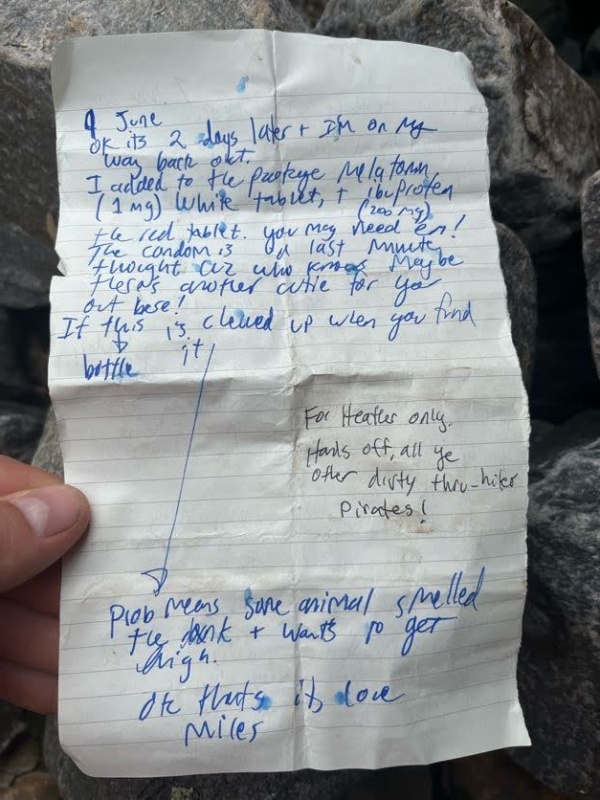 9 June
ok its 2 days later + I'm on my
way back out.
I added to the package Melatonin
(1 mg) white tablet, + ibuprofen
(200 mg)
the red tablet. you may need em!
The condom is a last minute
thought cuz who knows maybe
theres another cutie for you
out here!
If this is clewed up when you find
it
bottle
For Heather only.
Hands off, all ye
other dirty thru-hiker
Pirates!
Prob means some animal smelled
the dank + wants to get
high.
Ok thats it love
Miles